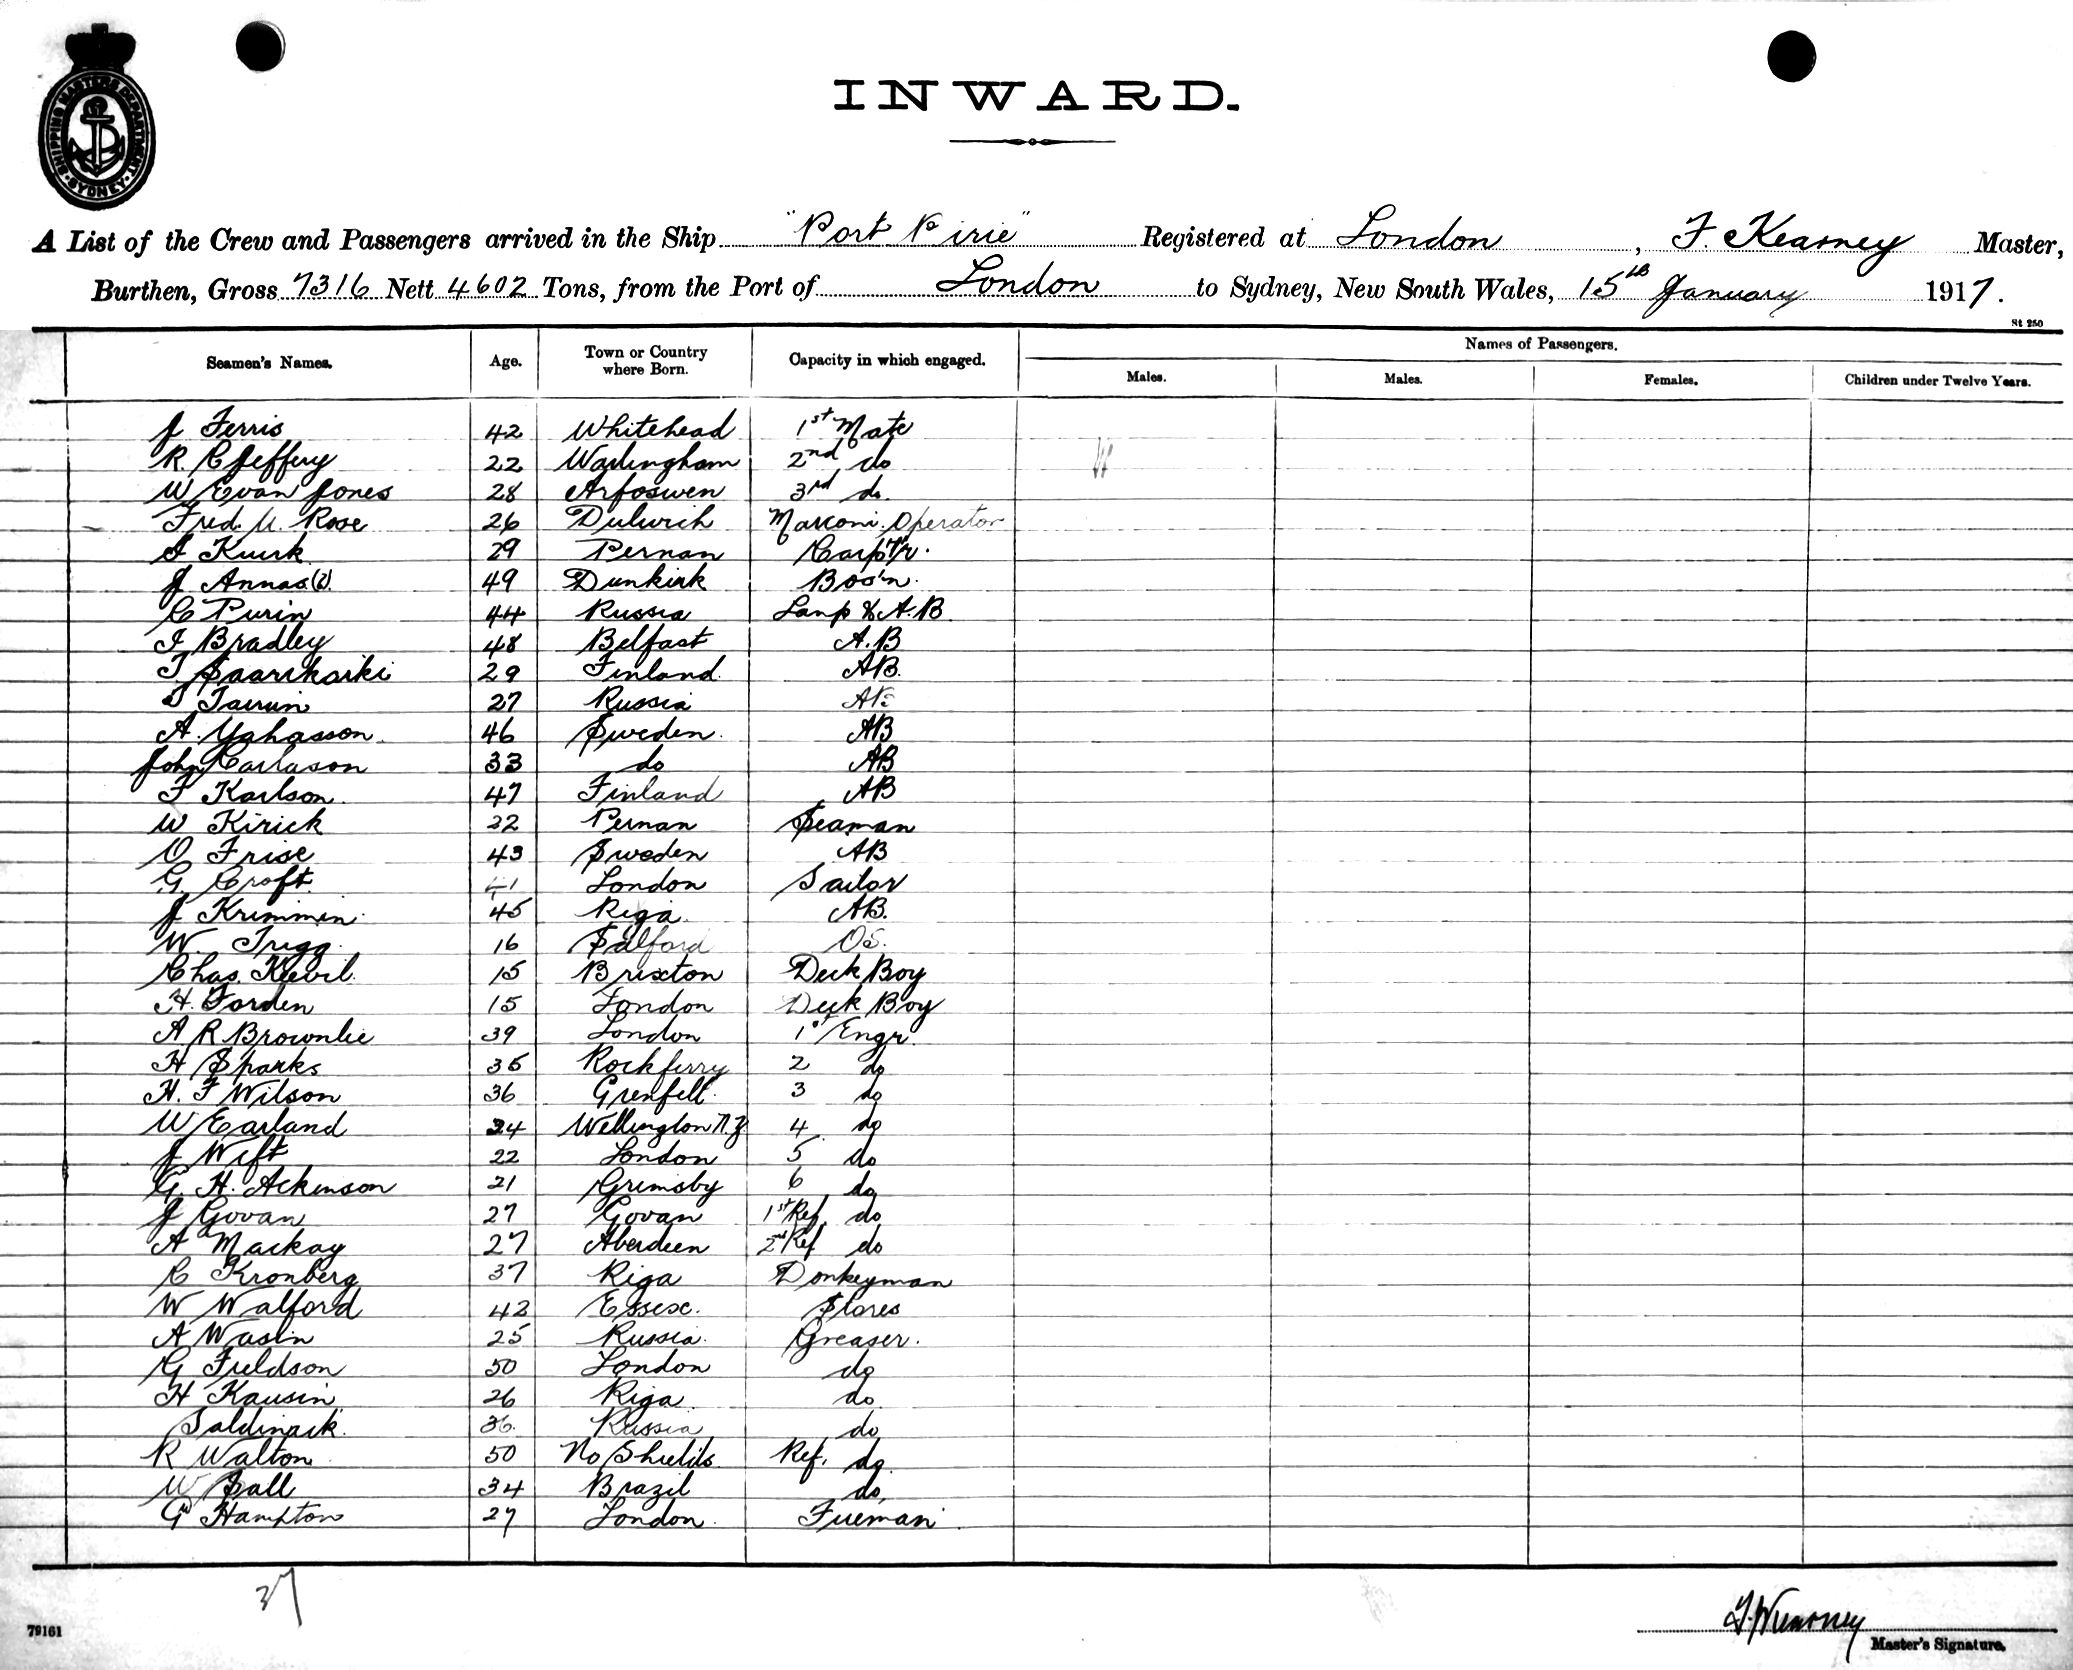 SHIPPING MASTERS DEPARTMENT SYDNEY
INWARD.
A List of the Crew and Passengers arrived in the Ship "Port Pirie" Registered at London, F. Kearney Master,
Burthen, Gross 7316 Nett 4602 Tons, from the Port of London to Sydney, New South Wales, 15th January 1917.
St 250
Seamen's Names. Age. Town or Country where Born. Capacity in which engaged. Names of Passengers.
Males. Males. Females. Children under Twelve Years.
J Ferris 42 Whitehead 1st Mate
R. C Jeffery 22 Warlingham 2nd do
W Evan Jones 28 3rd do.
Fred. U. Rose 26 Dulwich Marconi Operator
29 Pernan Carptr.
J Annas (2). 49 Dunkirk Bos'n.
C Purin 44 Russia Lamp & A.B.
I Bradley 48 Belfast A.B
29 Finland. AB.
27 Russia AB
A. Yahasson. 46 Sweden. AB
John Carlason 33 do AB
F Karlson. 47 Finland AB
W Kirick 22 Pernan Seaman
O Frise 43 Sweden AB
G. Croft. 41 London Sailor
J Krimmin. 45 Riga. AB.
W. Trigg. 16 Salford OS.
Chas. Keevil. 15 Brixton Deck Boy
H. Forden 15 London Deck Boy
A R Brownlie 39 London 1st Engr.
H Sparks 35 Rockferry 2 do
H. F Wilson 36 Grenfell. 3 do
W Earland 24 Wellington N.Z. 4 do
J Wift 22 London 5 do
G. H. Ackinson 21 Grimsby 6 do
J Govan 27 Govan 1st Ref. do
A Mackay 27 Aberdeen 2nd Ref do
C Kronberg 37 Riga Donkeyman
W Walford 42 Essex. Stores
A Wasin 25 Russia. Greaser.
G Fieldson 50 London do
H Kausin 26 Riga. do.
Saldinaik. 36. Russia do
R Walton 50 No Shields. Ref. do.
W Sall 34 Brazil do.
G Hampton 27 London. Fireman.
37
79161
Master's Signature.